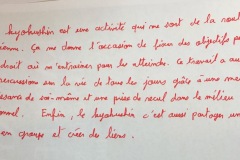 kyokushin est une activité qui me sort de la rout
ienne. Ça me donne l'occasion de fixer des objectifs pe
droit où m'entraîner pour les atteindre. Ce travail a au
percussions sur la vie de tous les jours grâce à une me
de soi-même et une prise de recul dans le milieu
onnel. Enfin, le kyokushin c'est aussi partager un
en groupe et créer des liens.